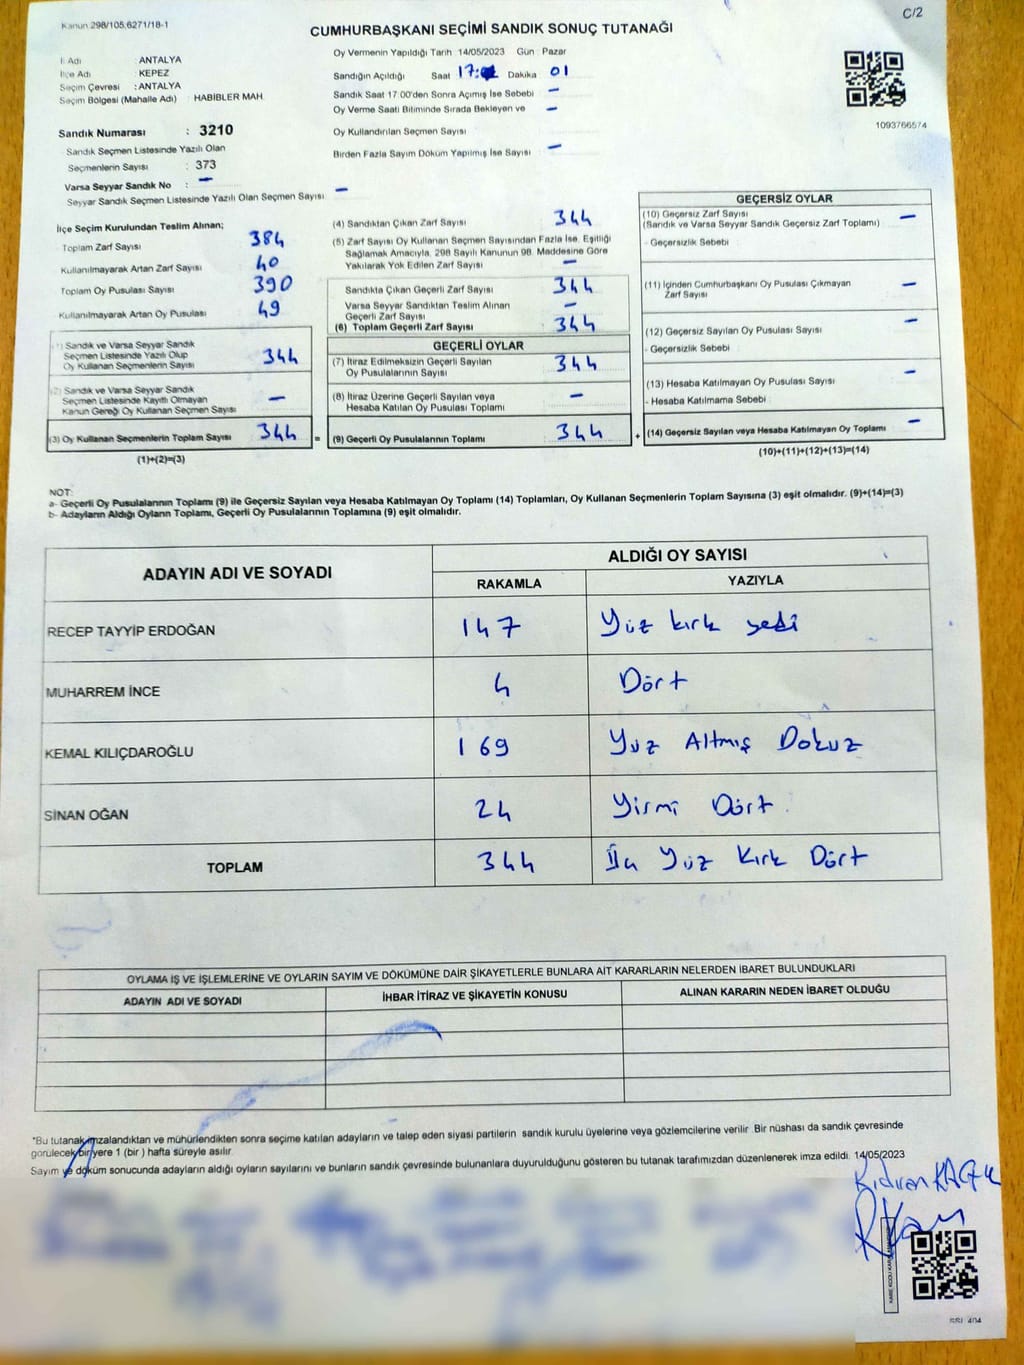 Kanun 298/105,6271/18-1
C/2
CUMHURBAŞKANI SEÇİMİ SANDIK SONUÇ TUTANAĞI
İl Adı : ANTALYA
İlçe Adı : KEPEZ
Seçim Çevresi : ANTALYA
Seçim Bölgesi (Mahalle Adı) : HABİBLER MAH
Sandık Numarası : 3210
Sandık Seçmen Listesinde Yazılı Olan
Seçmenlerin Sayısı : 373
Varsa Seyyar Sandık No : –
Seyyar Sandık Seçmen Listesinde Yazılı Olan Seçmen Sayısı –
Oy Vermenin Yapıldığı Tarih 14/05/2023 Gün Pazar
Sandığın Açıldığı Saat 17: Dakika 01
Sandık Saat 17:00'den Sonra Açmış İse Sebebi –
Oy Verme Saati Bitiminde Sırada Bekleyen ve –
Oy Kullandırılan Seçmen Sayısı
Birden Fazla Sayım Döküm Yapılmış İse Sayısı –
1093766574
İlçe Seçim Kurulundan Teslim Alınan;
Toplam Zarf Sayısı 384
Kullanılmayarak Artan Zarf Sayısı 40
Toplam Oy Pusulası Sayısı 390
Kullanılmayarak Artan Oy Pusulası 49
(1) Sandık ve Varsa Seyyar Sandık
Seçmen Listesinde Yazılı Olup
Oy Kullanan Seçmenlerin Sayısı 344
(2) Sandık ve Varsa Seyyar Sandık
Seçmen Listesinde Kayıtlı Olmayan
Kanun Gereği Oy Kullanan Seçmen Sayısı –
(3) Oy Kullanan Seçmenlerin Toplam Sayısı 344 =
(1)+(2)=(3)
(4) Sandıktan Çıkan Zarf Sayısı 344
(5) Zarf Sayısı Oy Kullanan Seçmen Sayısından Fazla İse, Eşitliği
Sağlamak Amacıyla, 298 Sayılı Kanunun 98. Maddesine Göre
Yakılarak Yok Edilen Zarf Sayısı –
Sandıkta Çıkan Geçerli Zarf Sayısı 344
Varsa Seyyar Sandıktan Teslim Alınan
Geçerli Zarf Sayısı –
(6) Toplam Geçerli Zarf Sayısı 344
GEÇERLİ OYLAR
(7) İtiraz Edilmeksizin Geçerli Sayılan
Oy Pusulalarının Sayısı 344
(8) İtiraz Üzerine Geçerli Sayılan veya
Hesaba Katılan Oy Pusulası Toplamı –
(9) Geçerli Oy Pusulalarının Toplamı 344 +
GEÇERSİZ OYLAR
(10) Geçersiz Zarf Sayısı –
(Sandık ve Varsa Seyyar Sandık Geçersiz Zarf Toplamı)
- Geçersizlik Sebebi
(11) İçinden Cumhurbaşkanı Oy Pusulası Çıkmayan
Zarf Sayısı –
(12) Geçersiz Sayılan Oy Pusulası Sayısı –
- Geçersizlik Sebebi
(13) Hesaba Katılmayan Oy Pusulası Sayısı –
- Hesaba Katılmama Sebebi
(14) Geçersiz Sayılan veya Hesaba Katılmayan Oy Toplamı –
(10)+(11)+(12)+(13)=(14)
NOT:
a- Geçerli Oy Pusulalarının Toplamı (9) ile Geçersiz Sayılan veya Hesaba Katılmayan Oy Toplamı (14) Toplamları, Oy Kullanan Seçmenlerin Toplam Sayısına (3) eşit olmalıdır. (9)+(14)=(3)
b- Adayların Aldığı Oyların Toplamı, Geçerli Oy Pusulalarının Toplamına (9) eşit olmalıdır.
ADAYIN ADI VE SOYADI
ALDIĞI OY SAYISI
RAKAMLA YAZIYLA
RECEP TAYYİP ERDOĞAN 147 Yüz kırk yedi
MUHARREM İNCE 4 Dört
KEMAL KILIÇDAROĞLU 169 Yüz Altmış Dokuz
SİNAN OĞAN 24 Yirmi Dört
TOPLAM 344 Yüz Kırk Dört
OYLAMA İŞ VE İŞLEMLERİNE VE OYLARIN SAYIM VE DÖKÜMÜNE DAİR ŞİKAYETLERLE BUNLARA AİT KARARLARIN NELERDEN İBARET BULUNDUKLARI
ADAYIN ADI VE SOYADI İHBAR İTİRAZ VE ŞİKAYETİN KONUSU ALINAN KARARIN NEDEN İBARET OLDUĞU
"Bu tutanak imzalandıktan ve mühürlendikten sonra seçime katılan adayların ve talep eden siyasi partilerin sandık kurulu üyelerine veya gözlemcilerine verilir. Bir nüshası da sandık çevresinde
görülecek bir yere 1 (bir) hafta süreyle asılır.
Sayım ve döküm sonucunda adayların aldığı oyların sayılarını ve bunların sandık çevresinde bulunanlara duyurulduğunu gösteren bu tutanak tarafımızdan düzenlenerek imza edildi. 14/05/2023